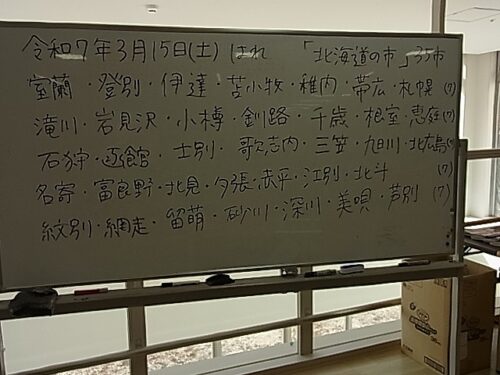 令和7年3月15日(土) はれ 「北海道の市」35市
室蘭・登別・伊達・苫小牧・稚内・帯広・札幌(7)
滝川・岩見沢・小樽・釧路・千歳・根室・恵庭(7)
石狩・函館・士別・歌志内・三笠・旭川・北広島(7)
名寄・富良野・北見・夕張・赤平・江別・北斗(7)
紋別・網走・留萌・砂川・深川・美唄・芦別(7)